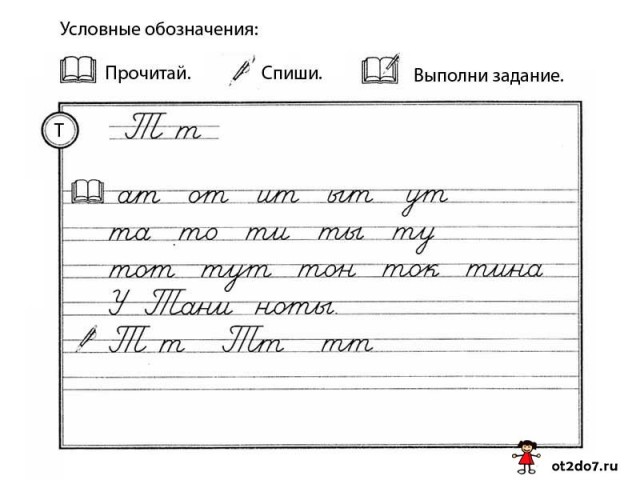 Условные обозначения:
Прочитай. Спиши. Выполни задание.
Т
Т т
ат от ит ыт ут
та то ти ты ту
тот тут тон ток тина
У Тани ноты.
Т т Тт тт
ot2do7.ru